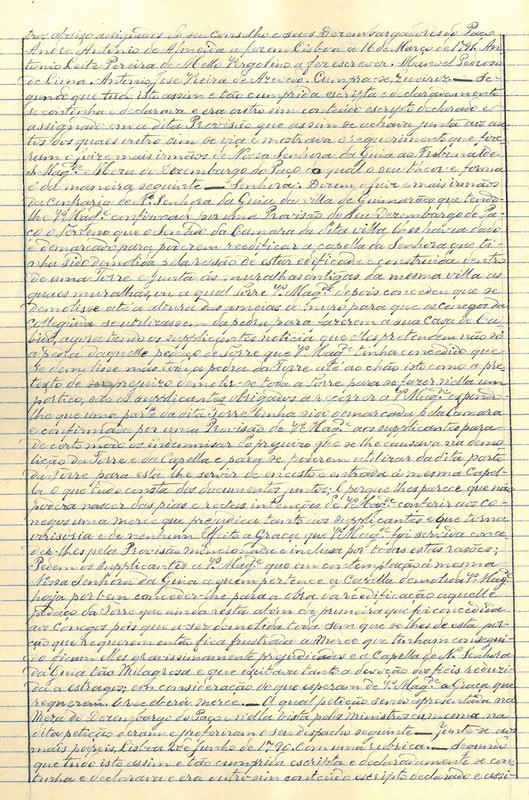 dos abaixo assignados do seu Conselho e seus Dezembargadores do Paço,
Andre Antonio de Almeida a fez em Lisboa a 16 de Março de An-
tonio Leite Pereira de Mello Virgolino a fez escrever Manoel
de Lima Antonio José Vieira de Azevedo Cumpra-se — Se-
gundo que tudo isto assim e tão cumprida escripta e declaradamente
se continha e declarava e era outro sim conteúdo escripto declarado e
assignado em a dita Provisão que assim se achava junta aos au-
tos dos quaes outro sim se via e mostrava o requerimento que fize-
ram o Juiz e mais irmãos de Nossa Senhora da Guia ao Tribunal de
S. Magde e Meza do Dezembargo do Paço o qual o seu theor e forma
é da maneira seguinte — Senhora: Dizem o Juiz e mais irmãos
da Confraria de Na Senhora da Guia da villa de Guimarães que tendo-
lhe Va Magde confirmado por uma Provisão do Seu Dezembargo do Pa-
ço o terreno que o Senado da Camara da dita villa lhes havia dado
e demarcado para poderem reedificar a capella da Senhora que ti-
nha sido demolida pela rasão de estar edificada e construida dentro
de uma Torre e junta ás muralhas antigas da mesma villa as
quaes muralhas, ou a qual Torre Va Magde depois concedeu que se
demolisse até a altura das ameias do muro para que os conegos da
Collegiada se utilizassem da pedra para fazerem a sua Casa do Ca-
bido, agora tendo os supplicantes noticia que elles pretendem não só
a pedra daquelle pedaço da Torre que Va Magde tinha concedido que
se demolisse mas sim a pedra da Torre até ao chão isto com o pre-
texto de ser preciso demolir-se toda a Torre para se fazer nella um
portico, são os supplicantes obrigados a recorrer a Va Magde e expôr-
lhe que uma porta da dita Torre tinha sido demarcada pela Camara
e confirmada por uma Provisão de Va Magde aos supplicantes para
de certo modo os indemnisar do prejuizo que se lhe causava na demo-
lição da Torre e da Capella e para se poderem utilizar da dita porta
da Torre para esta lhe servir de encosto e entrada á mesma Capel-
la o que tudo consta dos documentos juntos; E porque lhes parece que não
poderá nascer das pias e rectas intenções de Va Magde conferir aos Co-
negos uma mercê que prejudica tanto aos supplicantes e que torna
irrisoria e de nenhum effeito a Graça que Va Magde foi servida conce-
der-lhes pela Provisão mencionada e inclusa por todas estas rasões;
Pedem os supplicantes a Va Magde que em contemplação á mesma
Nossa Senhora da Guia a quem pertence a Capella demolida Va Magde
haja por bem conceder-lhe para a obra da reedificação aquelle
pedaço da Torre que ainda resta além da primeira que foi concedida
aos Conegos pois que a ser demolida toda sem que se lhes dê esta por-
ção que requerem fica frustrada a mercê que tinham consegui-
do e ficam elles gravissimamente prejudicados e a Capella de Na Senhora
da Guia tão Milagrosa e que excitava tanto a devoção aos fieis reduzi-
da a estragos; em consideração do que esperam de Va Magde a Graça que
requerem E receberá mercê. — A qual petição sendo apresentada na
Meza do Dezembargo do Paço nella vista pelos ministros da mesma na
dita petição deram e proferiram o seu despacho seguinte — Junte-se aos
mais papeis, Lisboa 2 de Junho de 1790. Com uma rubrica. — Segundo
que tudo isto assim e tão cumprida escripta e declaradamente se con-
tinha e declarava e era outro sim conteúdo escripto declarado e assi-